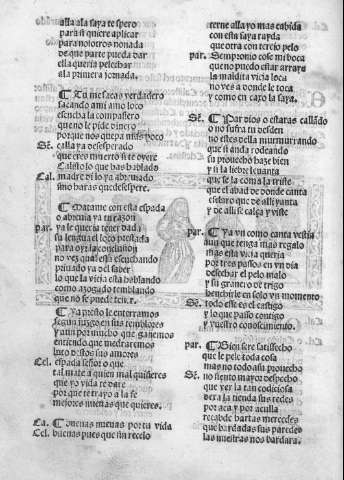 alla ala saya te spero
para si quiere aplicar
para nosotros nonada
de que parte pueda dar
ella queria pelechar
ala primera jornada.
¶ Tu me sacas verdadero
sacando ami amo loco
escucha la compañero
que no le pide dinero
porque nos quepa mas poco
Sē. calla ya desesperado
que eres muerto si te oyere
Calisto lo que has hablado
Cal. madre di lo ya
sino baras que desespere.
¶ Matame con esta espada
o abreuia ya tu razon
par. ya le queria tener dad
su lengua el loco prestada
para oyr la conclusion
no vez qual esta escuchando
pelado ya del saber
lo que la vieja esta hablando
como azogado temblando
que no se puede tener.
¶ Ya presto le enterramos
segun juzgo en sus temblores
y aun por mucho que ganemos
entiendo que medraremos
luto destos sus amores
Cel. espada señor o que
tal mate a quien mal quisieres
que yo vida te dare
por que te trayo a la fe
mejores nueuas que quieres.
Ca. ¶ buenas nueuas por tu vida
Cel. buenas pues que sin recelo
terne alla yo mas cabida
con esta saya rayda
que otra con tercio pelo
par. Sempronio cose mi boca
que no puedo estar arroyo
la maldita vieja loca
no ves a donde le toca
y como en caxo la saya.
Sē. ¶ Par dios o estaras callado
o no sufra tu desden
no estes della murmurando
que si anda rodeando
su prouecho haze bien
y si la liebre leuanta
que se la coma la triste
que el abad de donde canta
es claro que de alli yanta
y de alli se calça y viste
par. ¶ Ya vn como canta vestia
aun que tenga mas regalo
mas esta vieja queria
por tres passos en vn dia
desechar el pelo malo
y su granero de trigo
henchirle en solo vn momento
Sē. todo esse es el castigo
y lo que passo contigo
y vuestro conoscimiento.
par. ¶ Bien sere satisfecho
que le pele toda cosa
mas no todo a su prouecho
Sē. no siento mayor despecho
que ver la tan codiciosa
dera la tienda sus redes
por aca y por aculla
recabde hartas mercedes
que bardadas sus paredes
las nuestras nos bardara.